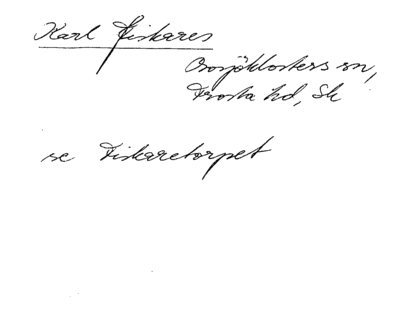 Karl Fiskares
Bosjöklosters sn,
Frosta hd, Sk
se Fiskaretorpet